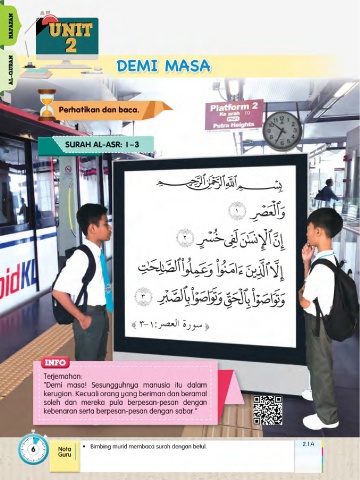 HAFAZAN
AL-QURAN
UNIT
2
DEMI MASA
Perhatikan dan baca.
Platform 2
Ke arah / To
Putra Heights
SURAH AL-ASR: 1-3
بِسْمِ اللَّهِ الرَّحْمَٰنِ الرَّحِيمِ
وَالْعَصْرِ ١
إِنَّ الْإِنسَانَ لَفِي خُسْرٍ ٢
إِلَّا الَّذِينَ ءَامَنُوا وَعَمِلُوا الصَّالِحَاتِ
وَتَوَاصَوْا بِالْحَقِّ وَتَوَاصَوْا بِالصَّبْرِ ٣
﴿ سورة العصر: ١-٣ ﴾
pidKL
INFO
Terjemahan:
"Demi masa! Sesungguhnya manusia itu dalam
kerugian. Kecuali orang yang beriman dan beramal
soleh dan mereka pula berpesan-pesan dengan
kebenaran serta berpesan-pesan dengan sabar."
6
Nota
Guru
• Bimbing murid membaca surah dengan betul.
2.1.4